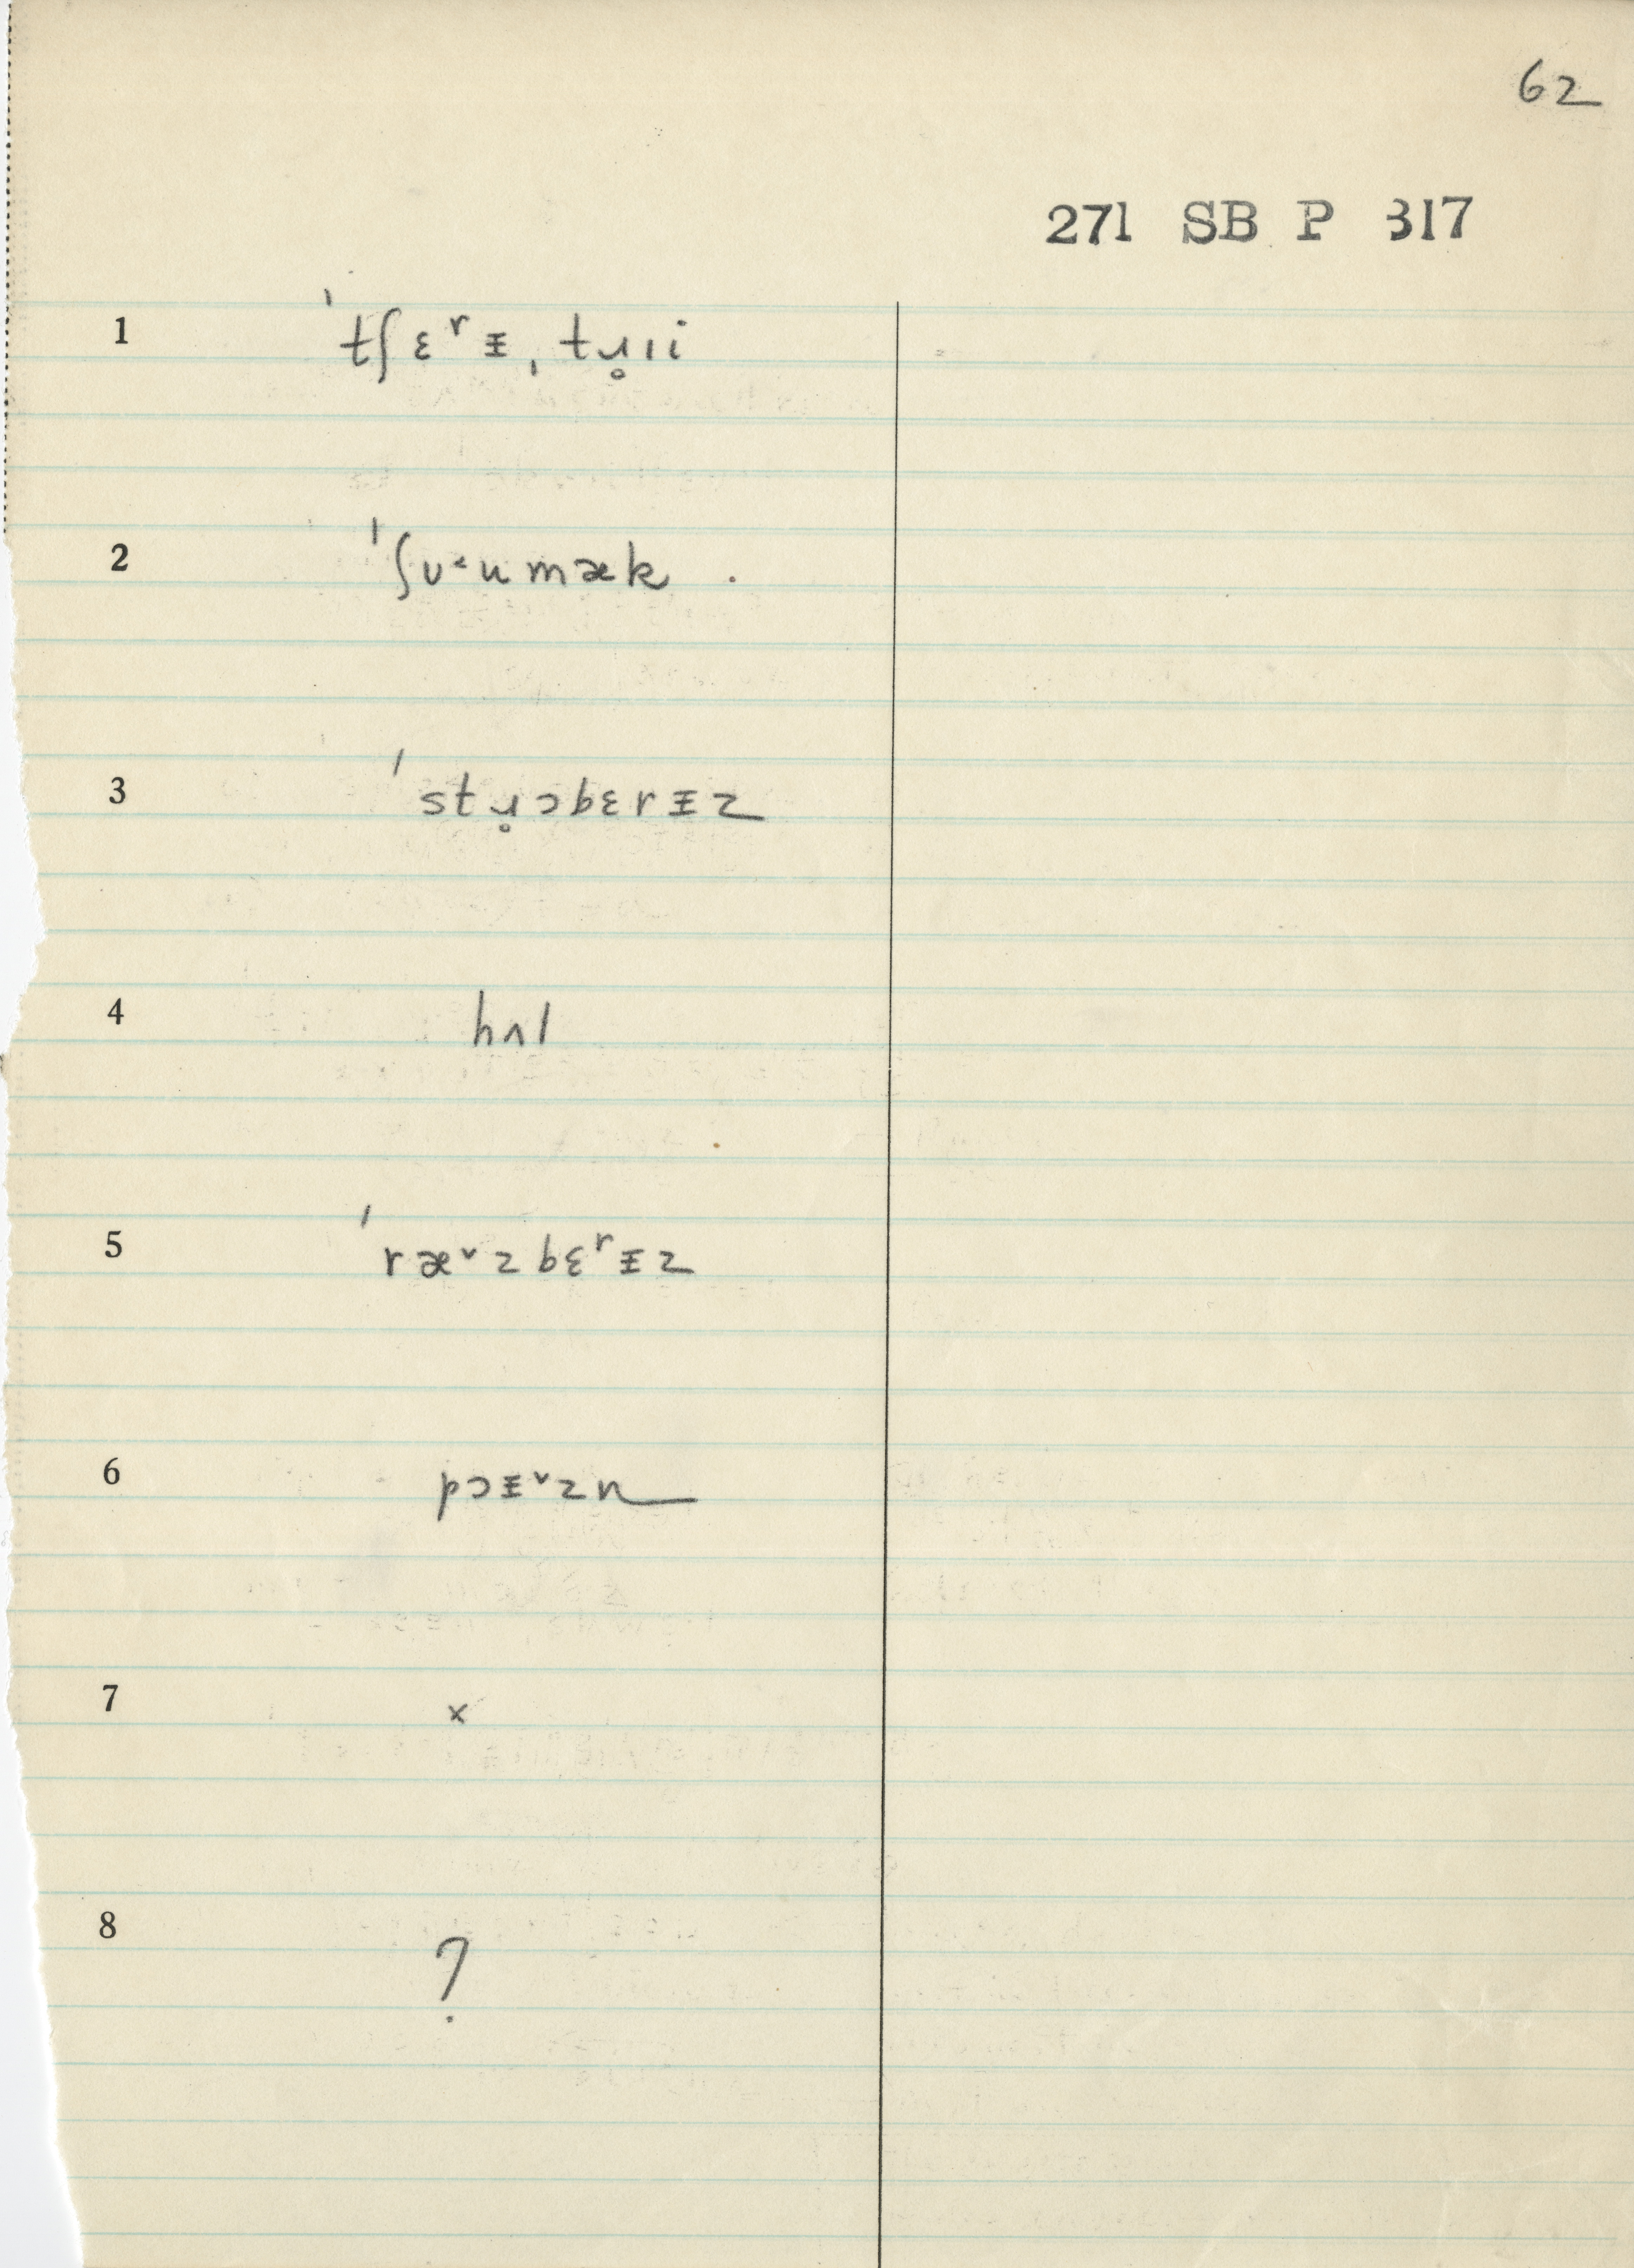 62
271 SB P 317
1 ˈtʃɛʳᵻˌtɹ̥ɪi
2 ˈʃu˂umæk .
3 ˈstɹ̥ɔbɛrᵻz
4 hʌl
5 ˈræ˅zbɛʳᵻz
6 pɔᵻ˅zn
7 x
8 ?